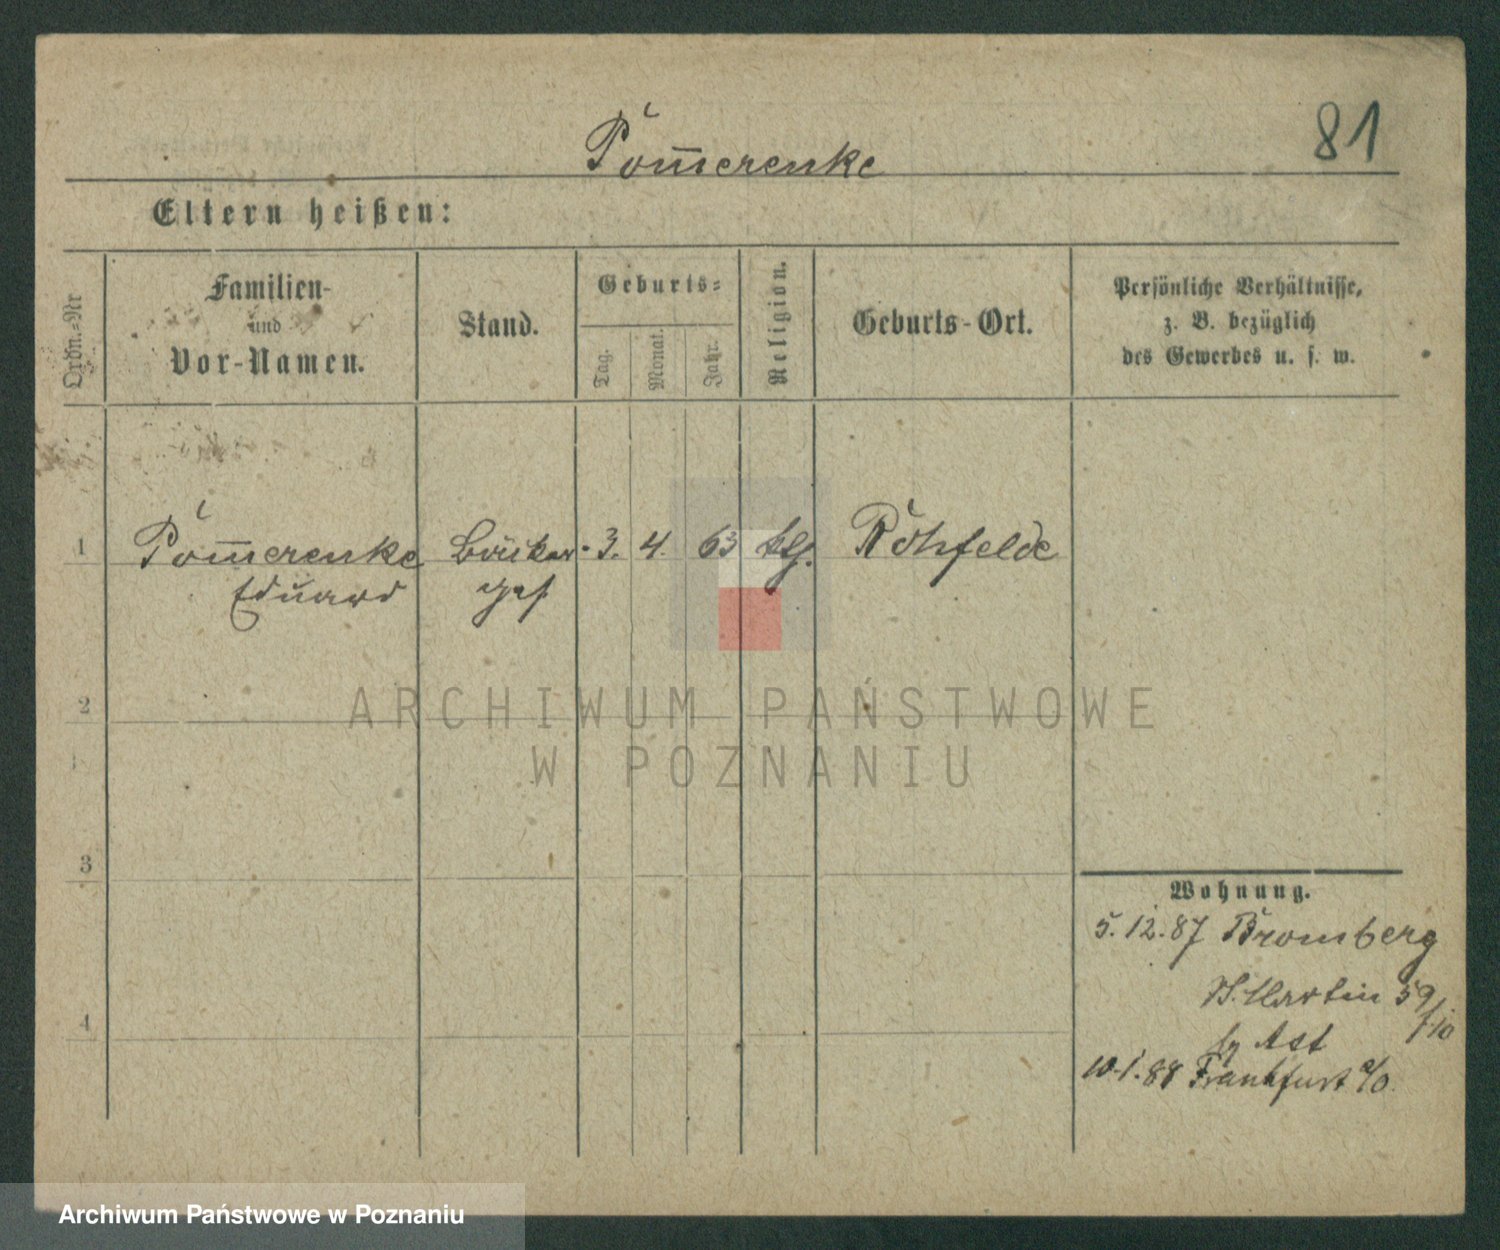 81
Pom̅erenke
Eltern heißen:
Ordn.-Nr
Familien-
und
Vor-Namen.
Stand.
Geburts-
Tag.
Monat.
Jahr.
Religion.
Geburts-Ort.
Persönliche Verhältnisse,
z. B. bezüglich
des Gewerbes u. s. w.
1 Pom̅erenke 3. 4. 63 Rohfelde
Eduard
2
ARCHIWUM PAŃSTWOWE
W POZNANIU
3
Wohnung.
5.12.87 Bromberg
St. Martin 59
4
10.1.88 Frankfurt a/O.
Archiwum Państwowe w Poznaniu